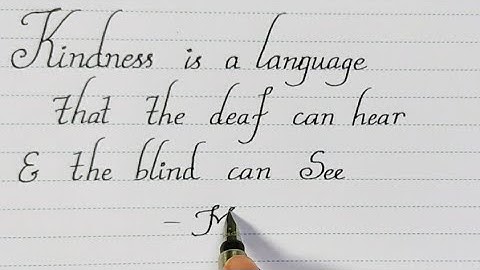 Kindness is a language
that the deaf can hear
& the blind can See
- M